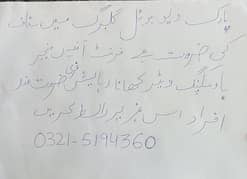 پارک ویو ہوٹل گلبرگ میں سٹاف
کی ضرورت ہے فرنٹ آفس منیجر
ہاؤسکیپنگ ویٹر کھانا رہائش فری ضرورت مند
افراد اس نمبر پر رابطہ کریں
0321-5194360